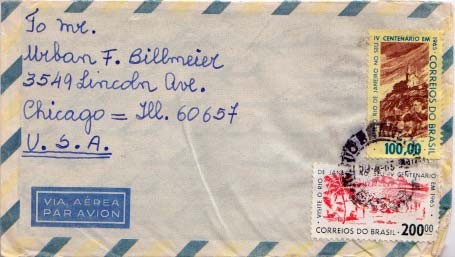 To Mr.
Urban F. Billmeier
3549 Lincoln Ave.
Chicago = Ill. 60657
U.S.A.
VIA AÉREA
PAR AVION
CENTENÁRIO EM 1965
RIO DE JANEIRO NO SEU IV
CORREIOS DO BRASIL
100,00
VISITE O RIO DE JANEIRO IV CENTENÁRIO EM 1965
CORREIOS DO BRASIL
200,00